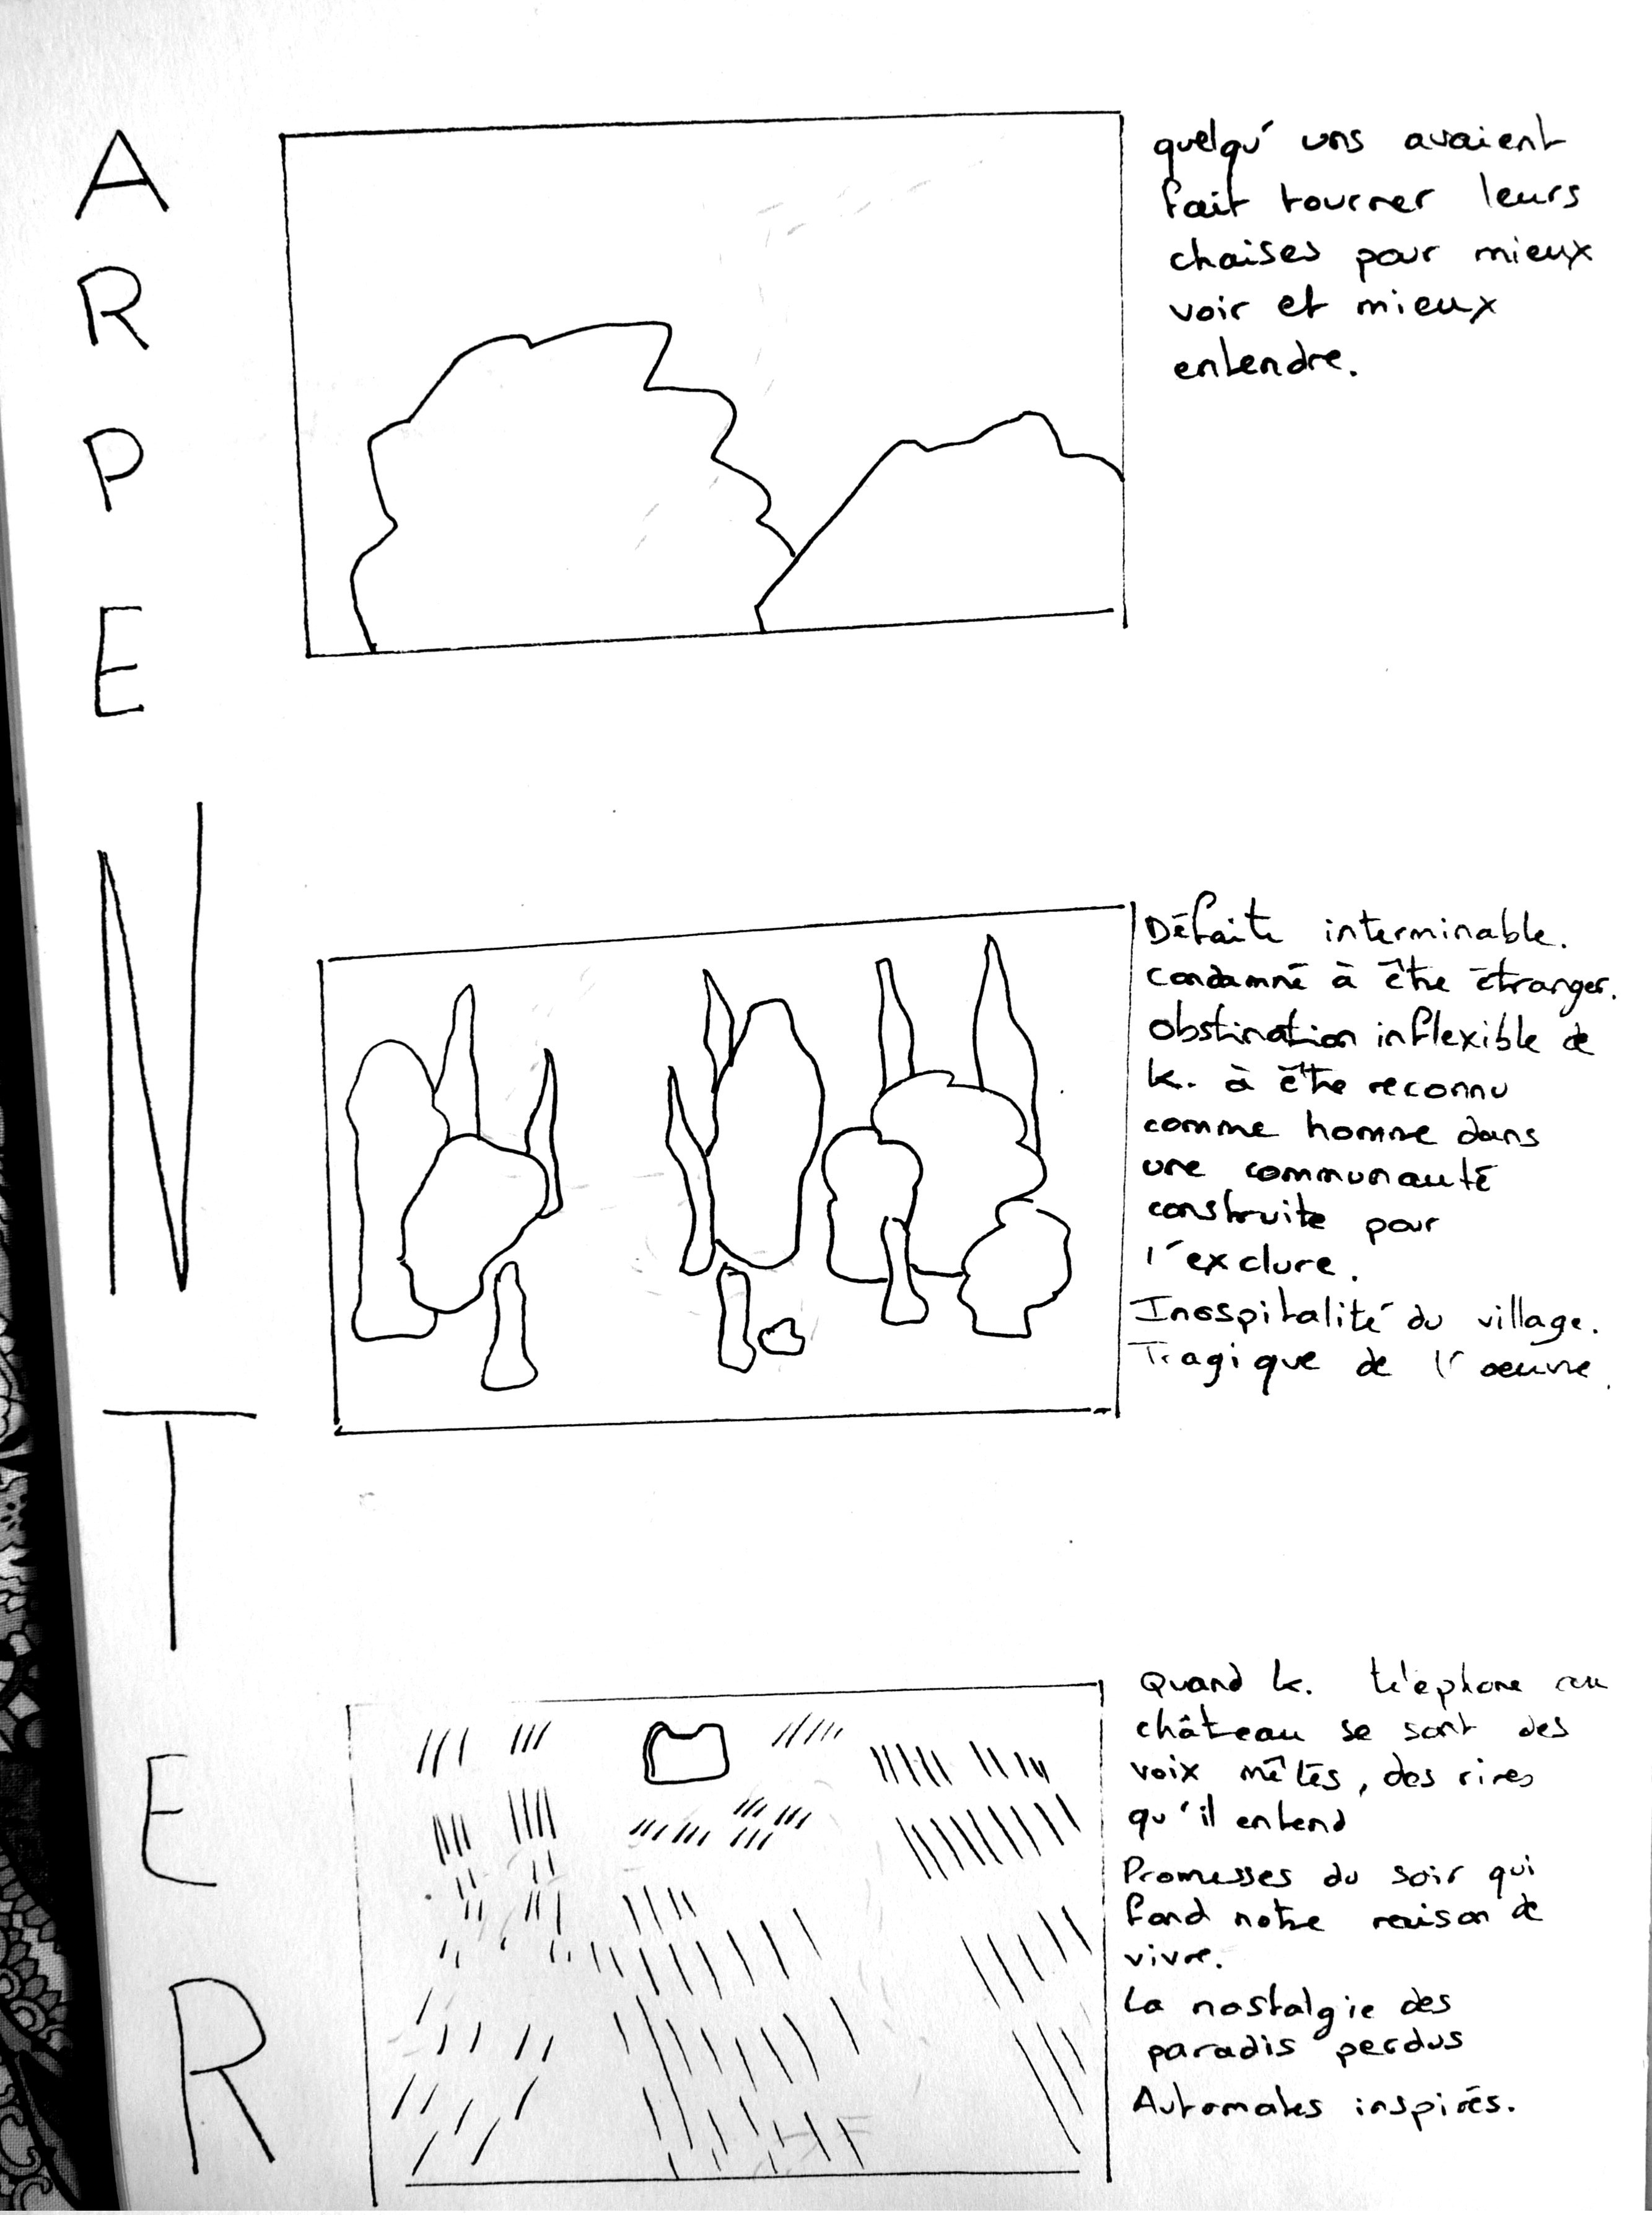 A
R
P
E
N
T
E
R
quelqu' uns avaient
fait tourner leurs
chaises pour mieux
voir et mieux
entendre.
Défaite interminable.
condamné à être étranger.
obstination inflexible de
k. à être reconnu
comme homme dans
une communauté
construite pour
l'exclure.
Inospitalité du village.
Tragique de l'oeuvre.
Quand k. téléphone au
château se sont des
voix mêlés, des rires
qu'il entend
Promesses du soir qui
fond notre raison de
vivre.
La nostalgie des
paradis perdus
Automates inspirés.